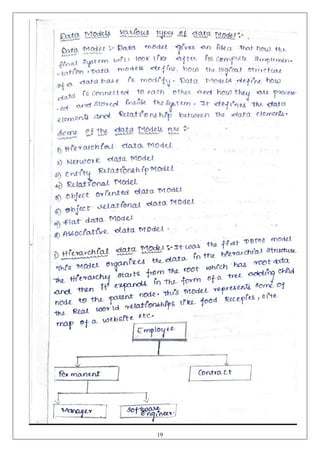 Data Models Various types of data Model :-
Data Model :- Data model gives an idea that how the
final system will look like after its complete implemen-
-tation. Data models define, how the logical structure
of a data base is modify. Data Models define how
data is connected to each other and how they are process
-ed and stored inside the system. It defines the data
elements and Relationship between the data elements.
Some of the data Models are :-
1) Hierarchial data Model
2) Network data Model
3) Entity Relationship Model
4) Relational Model
5) Object oriented data Model
6) Object relational data Model
7) Flat data Model
8) Associative data Model.
1) Hierarchial data Model :- It was the first DBMS model
This Model organizes the data in the hierarchial structure
The Hierarchy starts from the root which has root data
and then it expands in the form of a tree adding child
node to the parent node. This Model represents some of
the Real world relationships like food Recepies, site
map of a website etc.
Employee
Permanent Contract
Manager Software
engineer
19